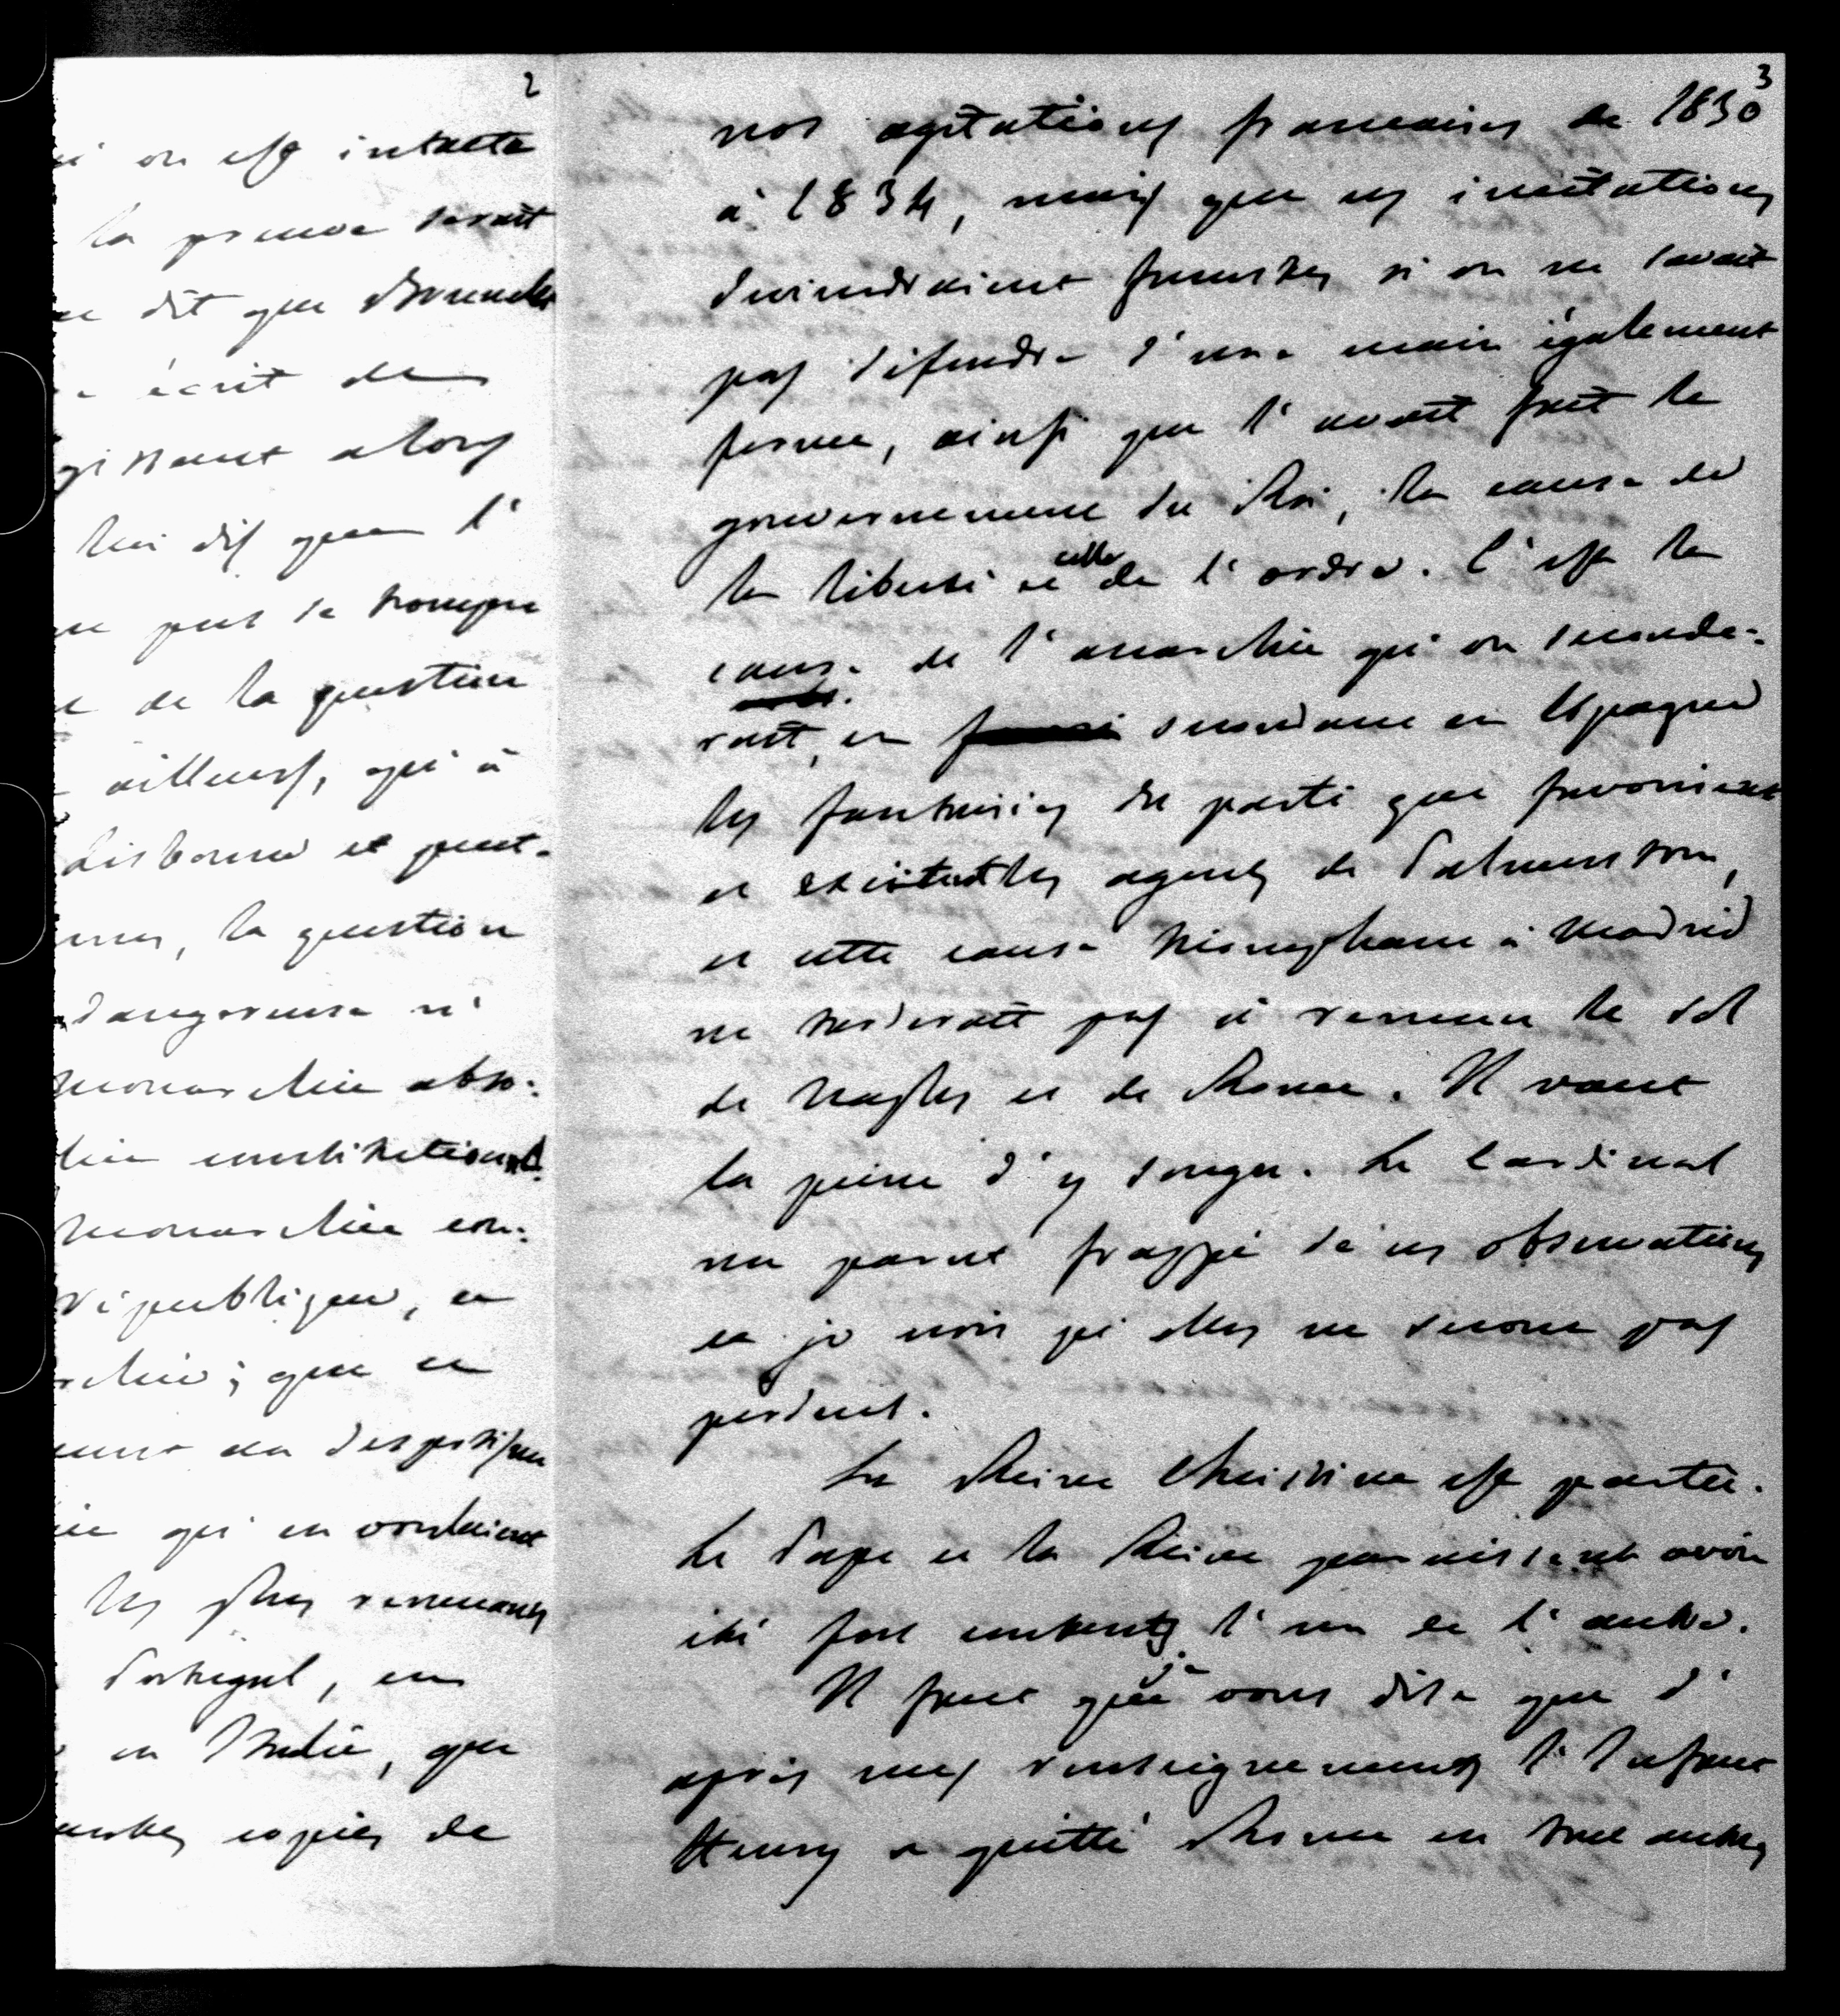 2
on est intacte
la preuve serait
dit que Bruxelles
écrit de
gissant alors
lui dis que l'
peut se tromper
de la question
ailleurs, qui à
Lisbonne et peut-
la question
dangereuse n'
monarchie abso-
constitutionnel
monarchie con-
République, en
que ce
au despotisme
qui en voulaient
les plus remuans
Portugal, en
en Italie, que
copies de
3
nos agitations françaises de 1830
à 1834, mais que ces imitations
deviendraient funestes si on ne savait
pas défendre d'une main également
ferme, ainsi que l'avait fait le
gouvernement du Roi, la cause de
la liberté et celle de l'ordre. C'est la
cause de l'anarchie qu'on seconde-
rait, en secondant en Espagne
les fantaisies du parti que favorisent
et excitent les agents de Palmerston,
et cette cause triomphant à Madrid
ne tarderait pas à remuer le sol
de Naples et de Rome. Il vaut
la peine d'y songer. Le Cardinal
me parut frappé de ces observations
et je crois qu'elles ne seront pas
perdues.
La Reine Christine est partie.
Le Pape et la Reine paraissent avoir
été fort contents l'un de l'autre.
Il faut que je vous dise que d'
après mes renseignements l'Infant
Henry a quitté Rome en tout autres